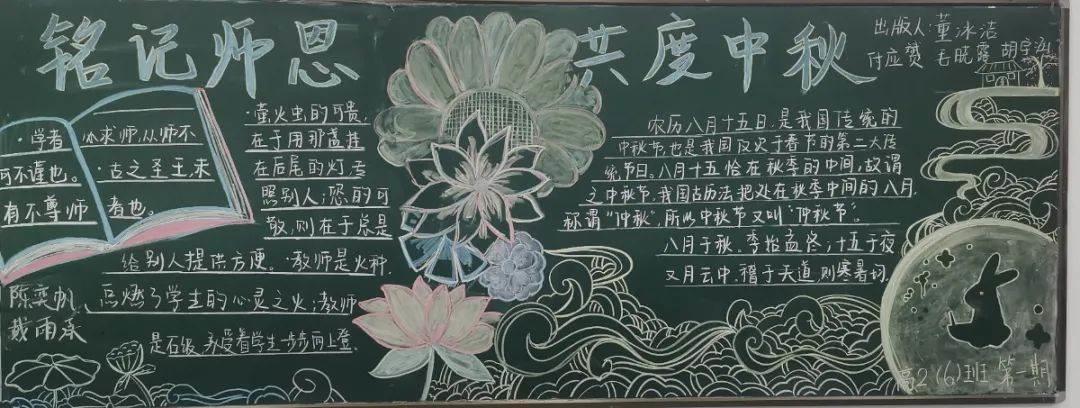 铭记师恩
·学者 必求师,从师不
可不谨也。·古之圣王,未
有不尊师者也。
·萤火虫的可贵,
在于用那盏挂
在后尾的灯,去
照别人;您的可
敬,则在于总是
给别人提供方便。·教师是火种,
点燃了学生的心灵之火;教师
是石级,承受着学生一步步向上登
陈奕帆
戴雨承
共度中秋
出版人:董冰洁
付应赟 毛晓露
农历八月十五日,是我国传统的
中秋节,也是我国仅次于春节的第二大传
统节日。八月十五恰在秋季的中间,故谓
之中秋节,我国古历法把处在秋季中间的八月,
称谓“仲秋”,所以中秋节又叫“仲秋节”。
八月于秋,季始孟终;十五于夜,
又月云中,稽于天道,则寒暑均
高2(6)班 第一期